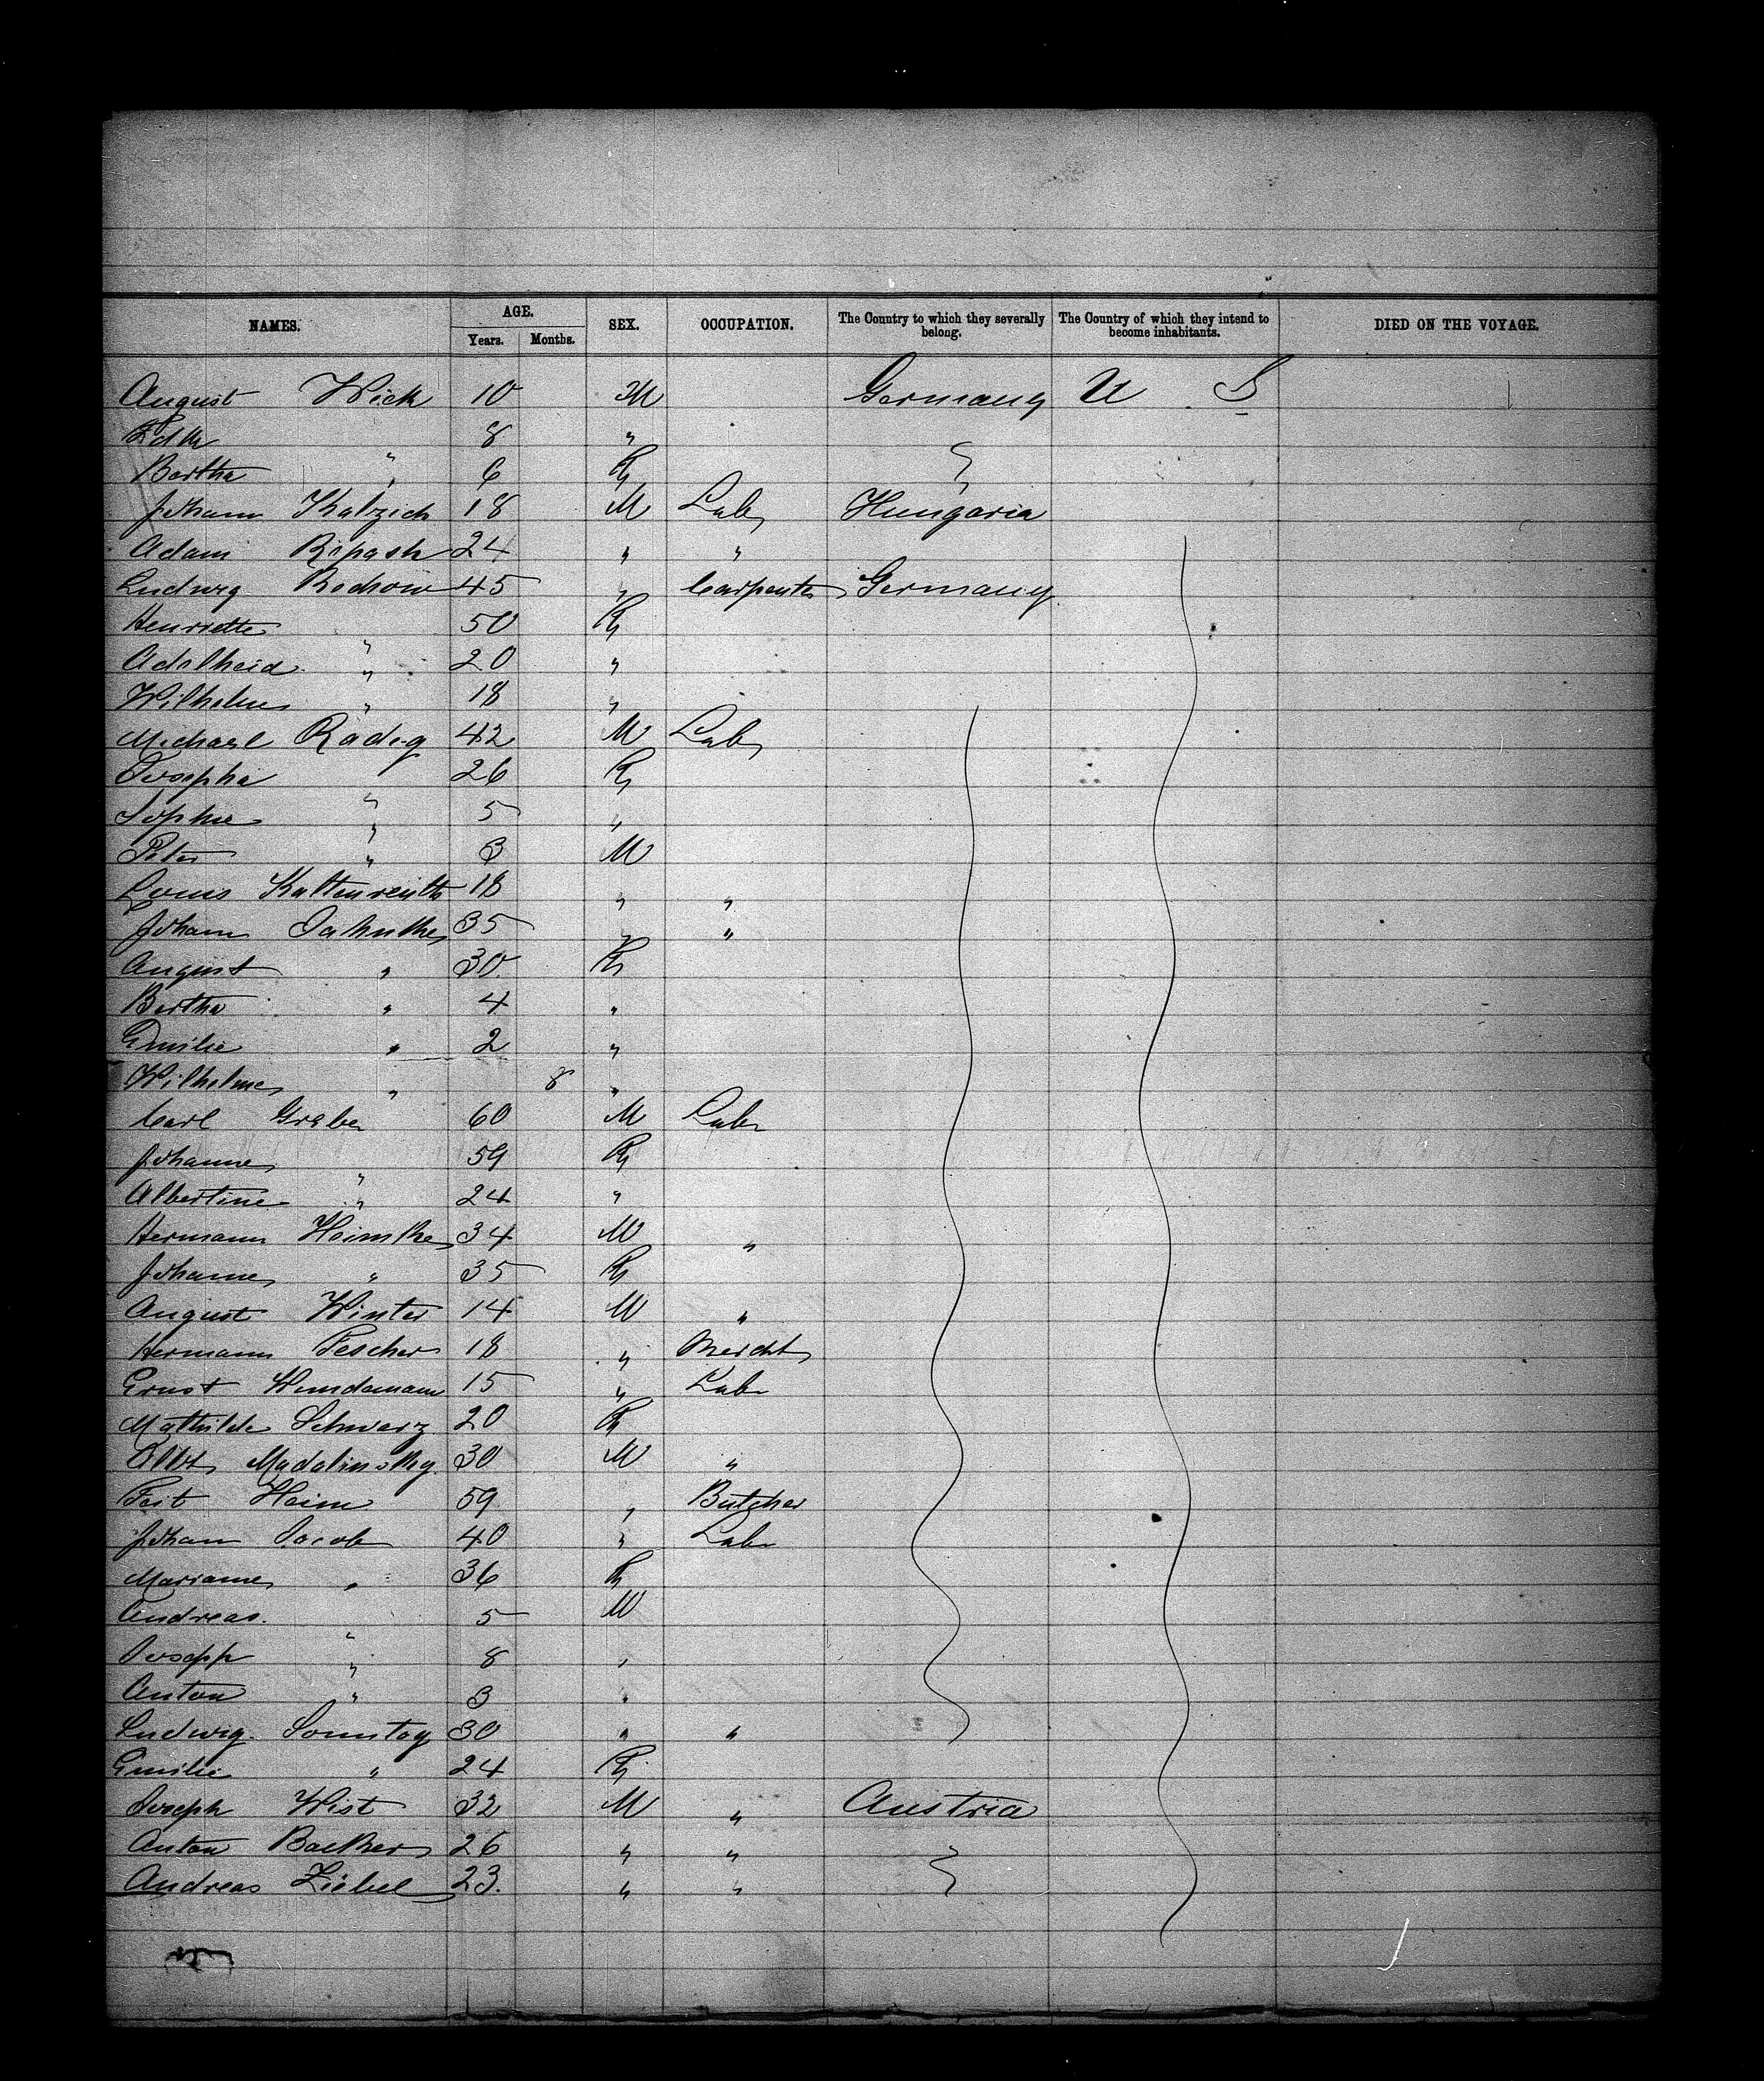 NAMES. AGE. SEX. OCCUPATION. The Country to which they severally belong. The Country of which they intend to become inhabitants. DIED ON THE VOYAGE.
Years. Months.
August Wick 10 M Germany U S
8 "
Bertha " 6 F
Johann Kalzich 18 M Lab Hungaria
Adam Ripash 24 " "
Ludwig Rochow 45 " Carpenter Germany
Henriette " 50 F
Adelheid " 20 "
Wilhelm " 18 "
Michael Radeg 42 M Lab
Josepha " 26 F
Sophie " 5 "
Peter " 3 M
Louis Kaltenreuth 18 " "
Johann Jahnke 35 " "
August " 30 F
Bertha " 4 "
Emilie " 2 "
Wilhelme " 8 "
Carl Graber 60 M Labr
Johanne " 59 F
Albertine " 24 "
Hermann Heimke 34 M "
Johanne " 35 F
August Winter 14 M "
Hermann Fescher 18 " Mercht
Ernst Hundamann 15 " Labr
Mathilde Schwarz 20 F
Albt Madalinsky 30 M "
Feit Heim 59 " Butcher
Johann Jacob 40 " Labr
Marianne " 36 F
Andreas " 5 M
Joseph " 8 "
Anton " 3 "
Ludwig Sonntag 30 " "
Emilie " 24 F
Joseph Wist 32 M " Austria
Anton Backer 26 " "
Andreas Liebel 23. " "